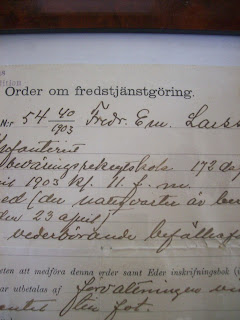 Order om fredstjänstgöring.
N:r 54 40/1903 Fredr. Em. Larss
Infanterist
beväringsrekrytskola 172 da
1903 kl. 11 f. m.
ed (der naturvarter av ber
den 23 april)
vederbörande befälhaf
eten att medföra denna order samt Eder inskrifningsbok (
ar utbetalas af förvaltningen vi
entet till fot.